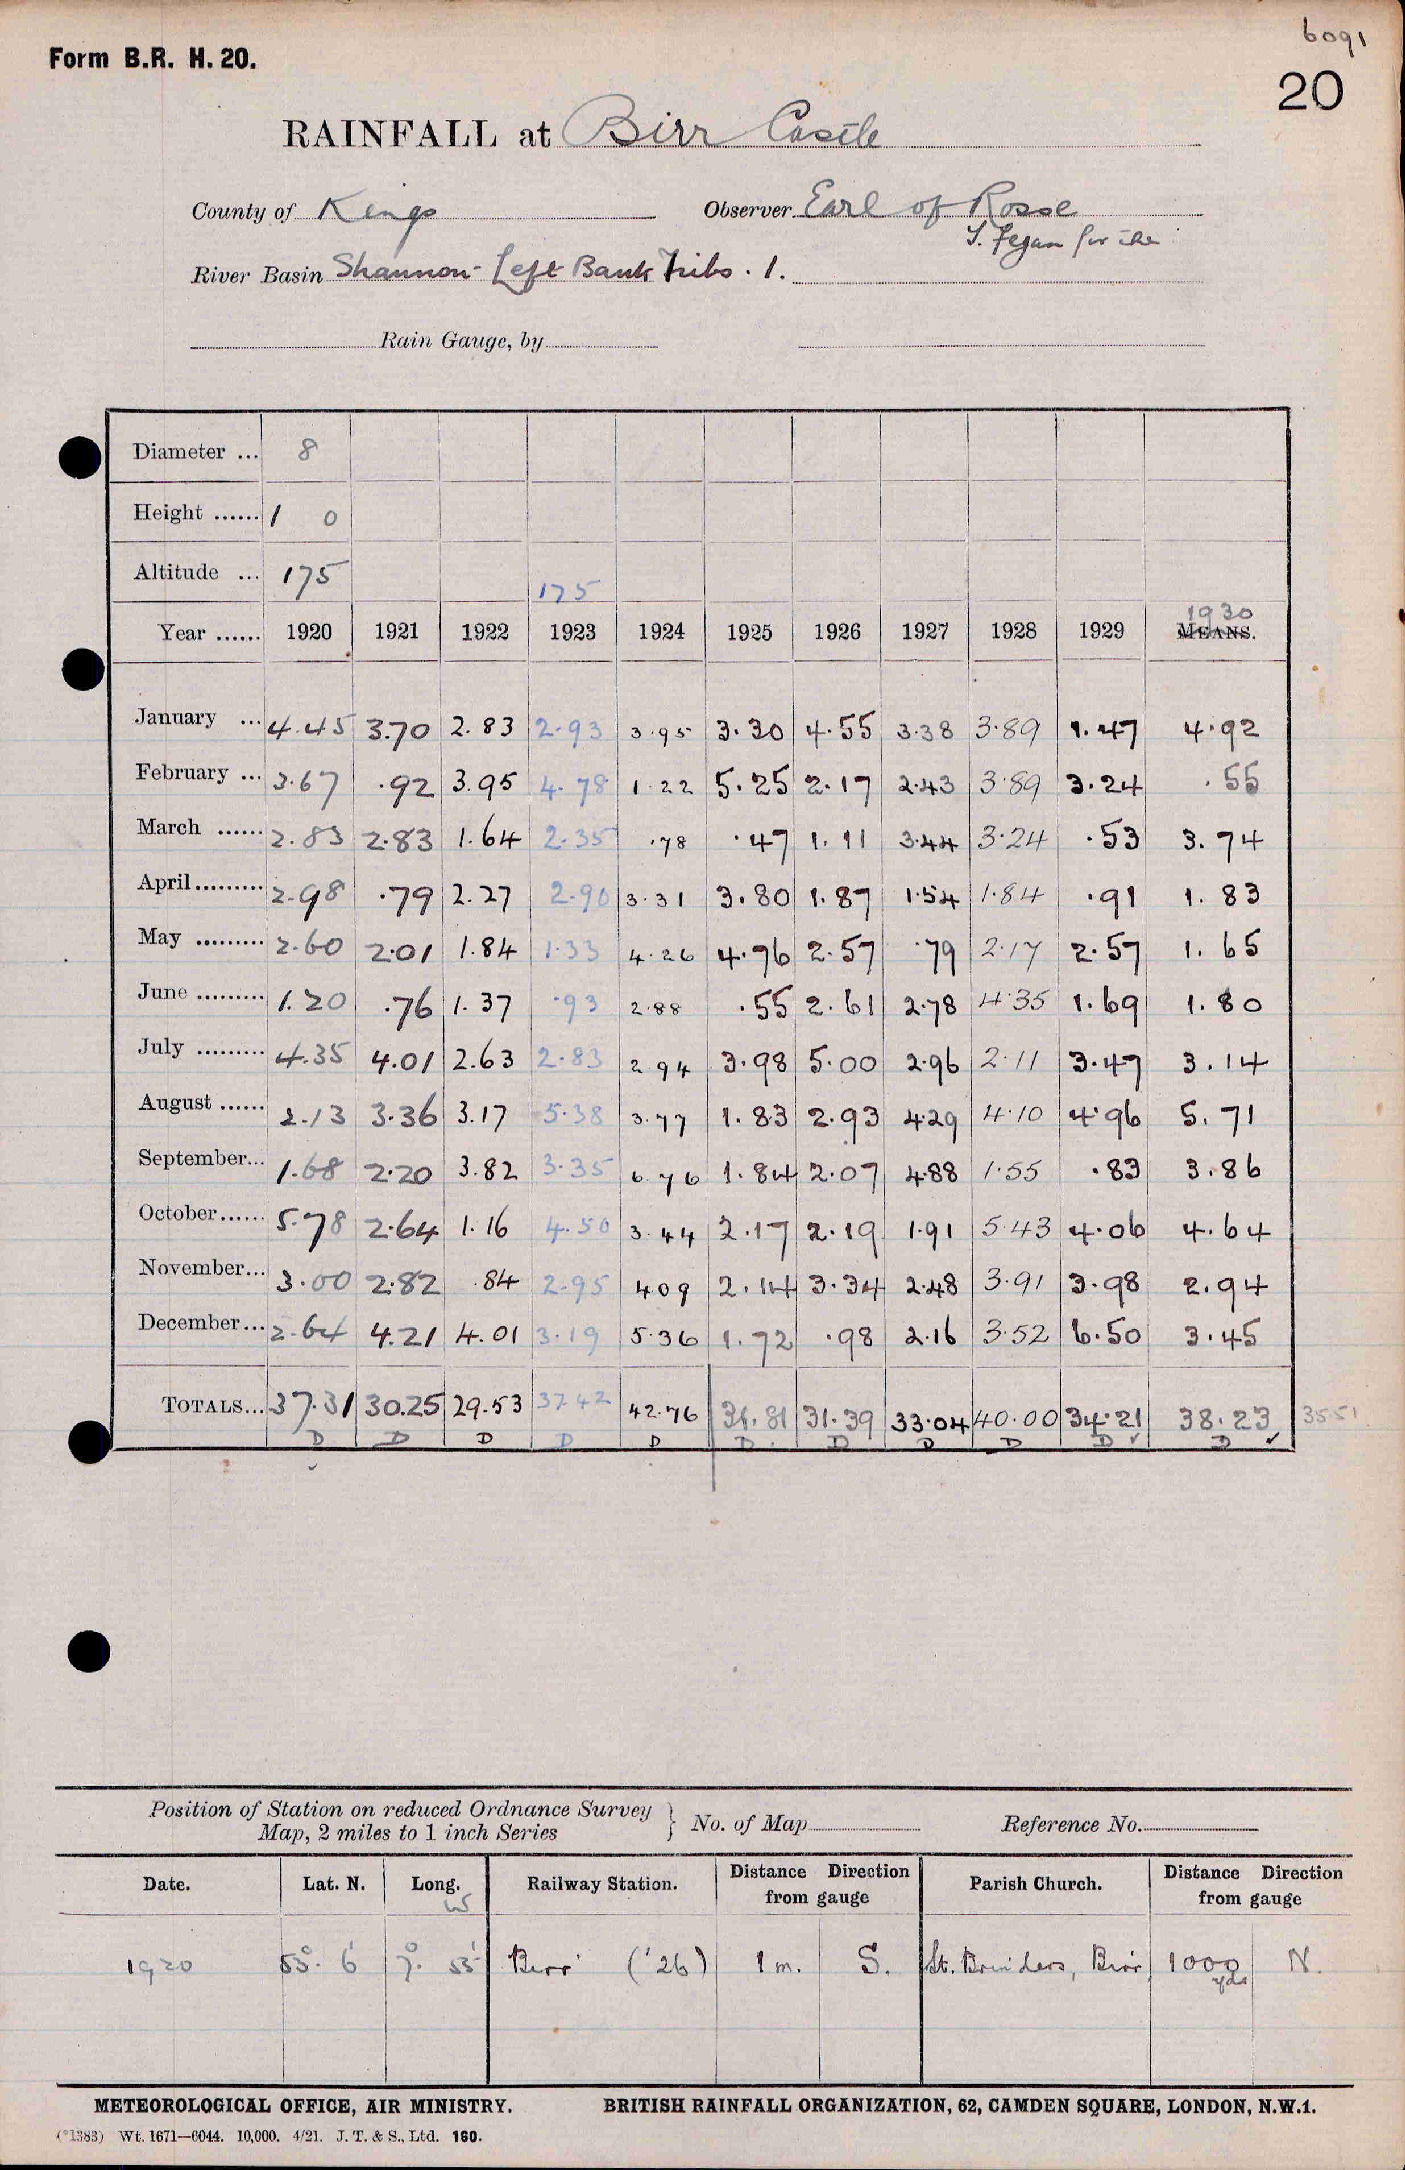 6091
Form B.R. H. 20.
20
RAINFALL at Birr Castle
County of Kings Observer Earl of Rosse
T. Fegan for the
River Basin Shannon - Left Bank Tribs. 1.
Rain Gauge, by
Diameter ... 8
Height ...... 1 0
Altitude ... 175 175
1930
Year ...... 1920 1921 1922 1923 1924 1925 1926 1927 1928 1929 MEANS.
January ... 4.45 3.70 2.83 2.93 3.95 3.30 4.55 3.38 3.89 1.47 4.92
February ... 3.67 .92 3.95 4.78 1.22 5.25 2.17 2.43 3.89 3.24 .55
March ...... 2.83 2.83 1.64 2.35 .78 .47 1.11 3.44 3.24 .53 3.74
April ......... 2.98 .79 2.27 2.90 3.31 3.80 1.87 1.54 1.84 .91 1.83
May ......... 2.60 2.01 1.84 1.33 4.26 4.76 2.57 .79 2.17 2.57 1.65
June ......... 1.20 .76 1.37 .93 2.88 .55 2.61 2.78 4.35 1.69 1.80
July ......... 4.35 4.01 2.63 2.83 2 94 3.98 5.00 2.96 2.11 3.47 3.14
August ...... 2.13 3.36 3.17 5.38 3.77 1.83 2.93 4.29 4.10 4.96 5.71
September... 1.68 2.20 3.82 3.35 6 76 1.84 2.07 4.88 1.55 .83 3.86
October...... 5.78 2.64 1.16 4.50 3.44 2.17 2.19 1.91 5.43 4.06 4.64
November... 3.00 2.82 .84 2.95 4 09 2.14 3.34 2.48 3.91 3.98 2.94
December... 2.64 4.21 4.01 3.19 5.36 1.72 .98 2.16 3.52 6.50 3.45
TOTALS... 37.31 30.25 29.53 37.42 42.76 31.81 31.39 33.04 40.00 34.21 38.23 35.51
D D D D D D D D D D ✓ D ✓
Position of Station on reduced Ordnance Survey
Map, 2 miles to 1 inch Series } No. of Map Reference No.
Date. Lat. N. Long. W Railway Station. Distance Direction from gauge Parish Church. Distance Direction from gauge
1920 53° 6' 7° 55' Birr ('26) 1 m. S. St. Brendans, Birr 1000 yds N.
METEOROLOGICAL OFFICE, AIR MINISTRY. BRITISH RAINFALL ORGANIZATION, 62, CAMDEN SQUARE, LONDON, N.W.1.
(*1383) Wt. 1671—6044. 10,000. 4/21. J. T. & S., Ltd. 160.